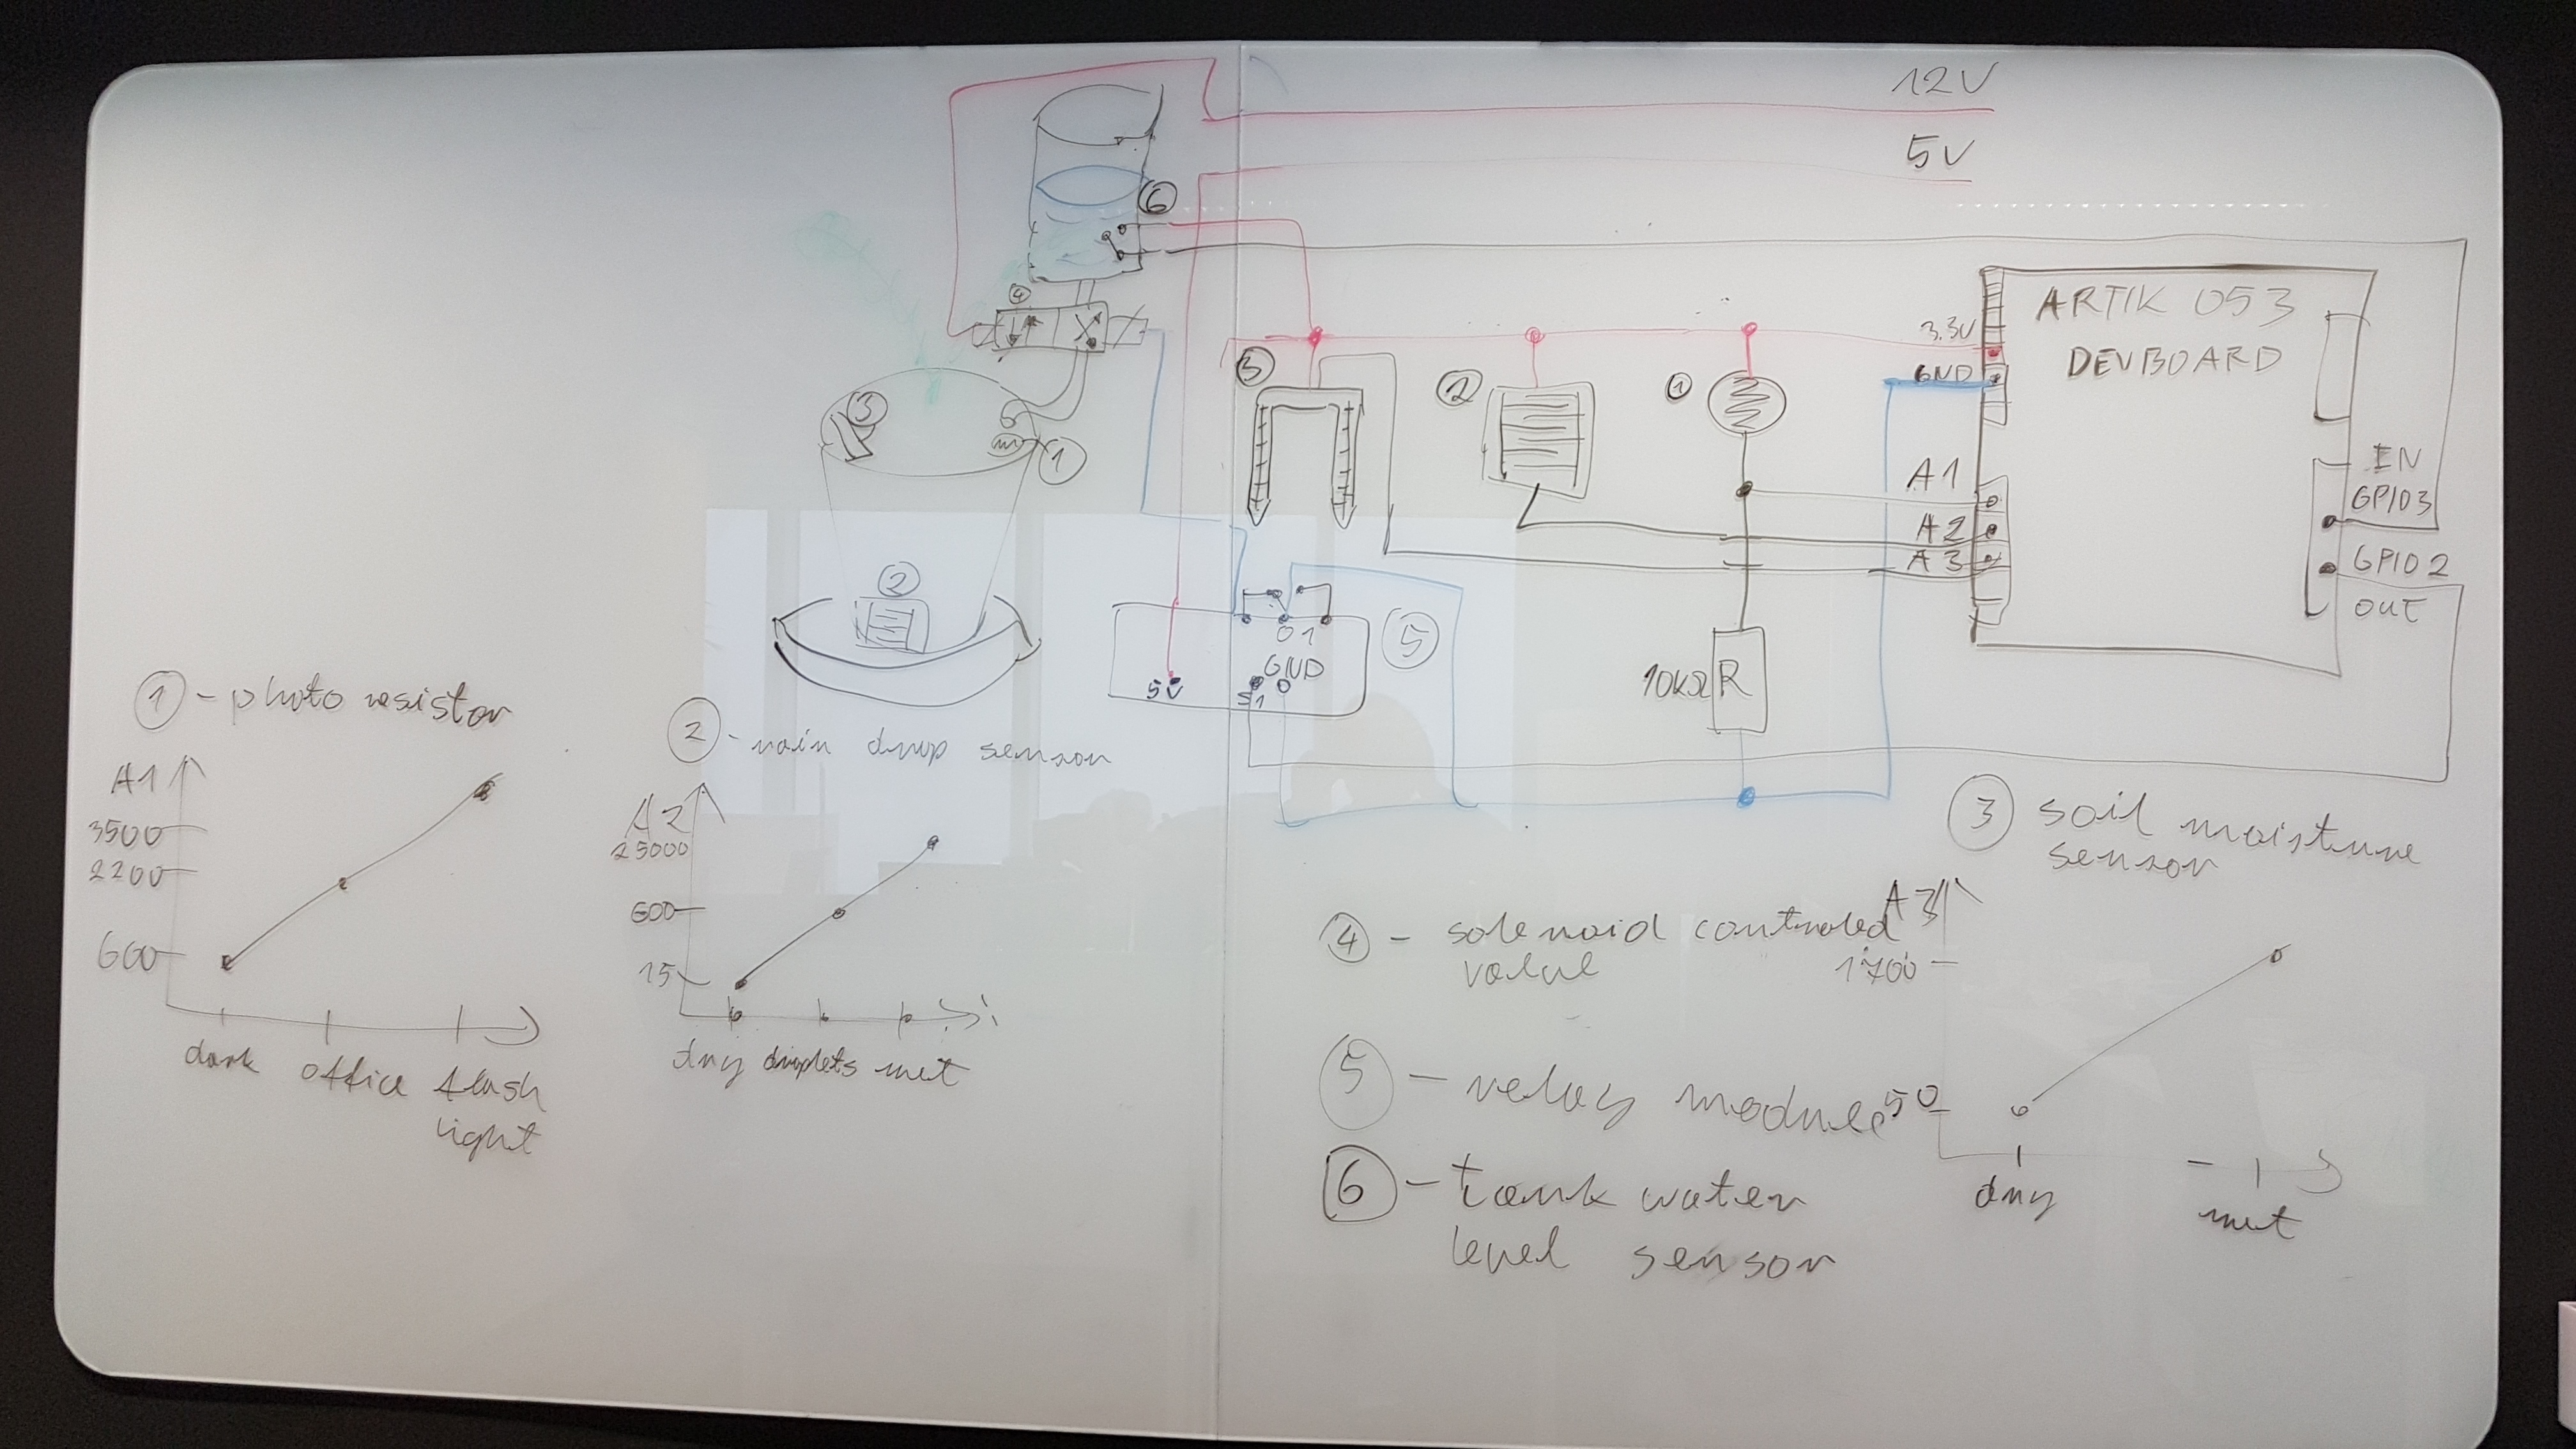 12V
5V
6
4
3
1
2
ARTIK 053
DEVBOARD
3.3V
GND
A1
A2
A3
IN
GPIO3
GPIO2
OUT
3
2
1
O1
GND
5V
S1
5
10kΩ R
1 - photo resistor
A1
3500
2200
600
dark office flash
light
2 - rain drop sensor
A2
25000
600
15
dry droplets wet
3 soil moisture
sensor
A3
1700
50
dry
wet
4 - solenoid controled
valve
5 - relay module
6 - tank water
level sensor